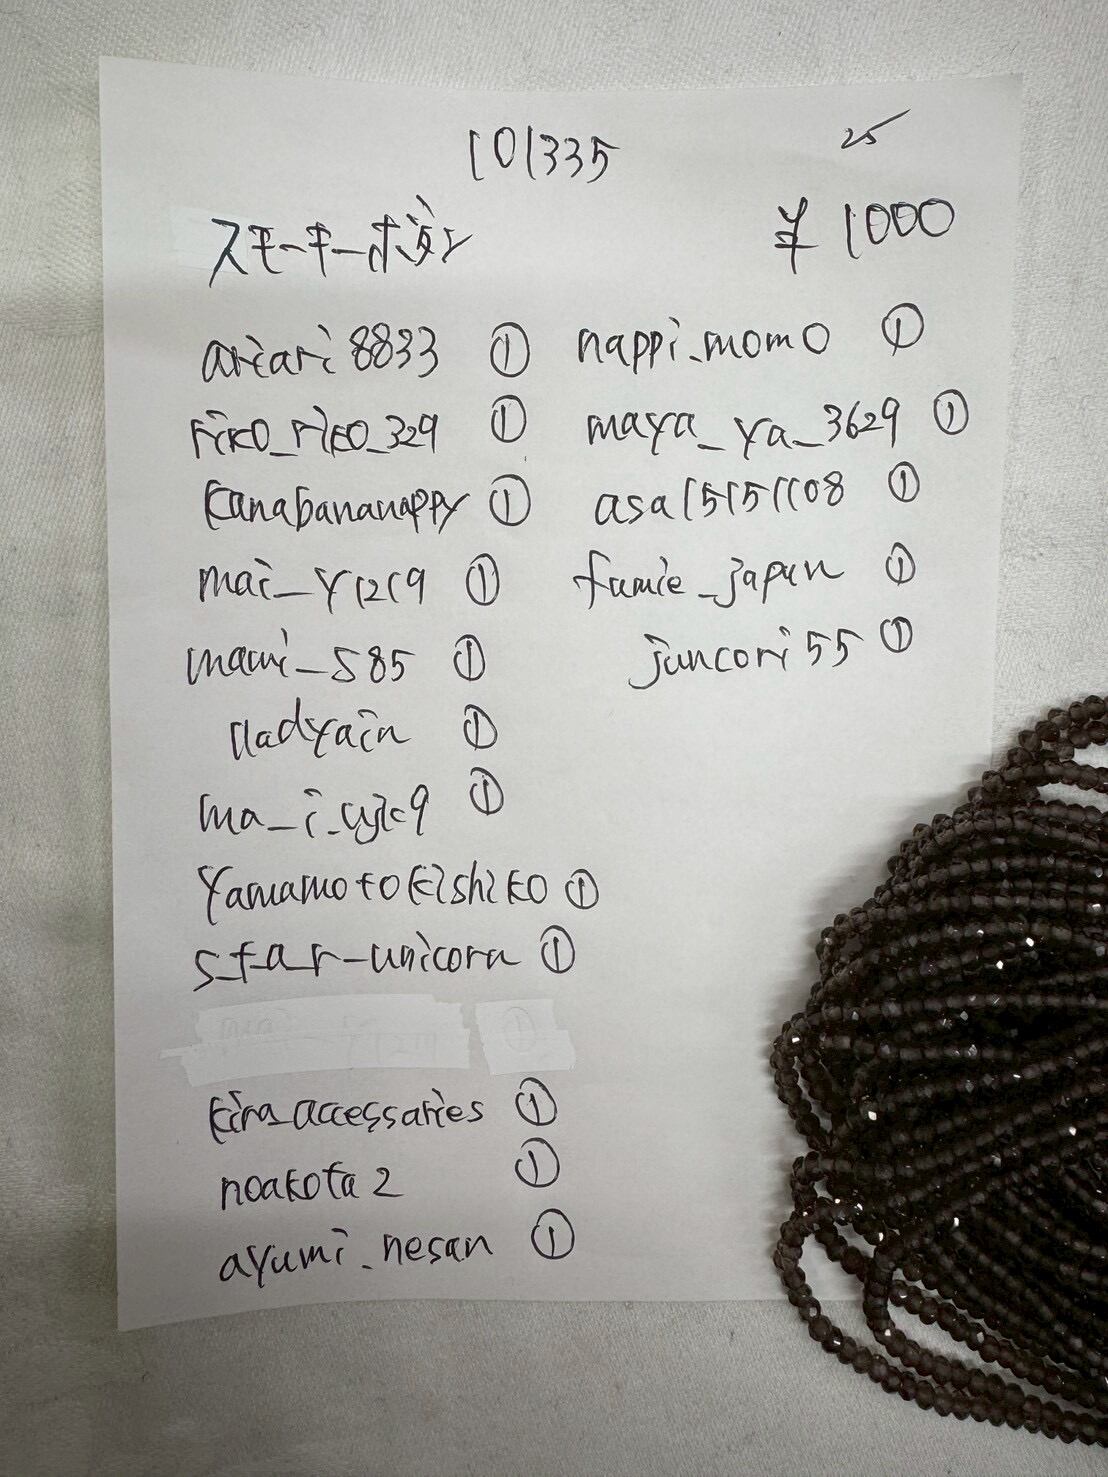 101335
25
スモーキーボタン
¥1000
ariari8833 ①
riko_riko_329 ①
kanabananappy ①
mai_y1219 ①
mami_s85 ①
lladyain ①
ma_i_ ①
yamamotokishiko ①
s_t_a_r_unicorn ①
kira_accessaries ①
noakota2 ①
ayumi_nesan ①
nappi_momo ①
maya_ya_3629 ①
asa15151108 ①
fumie_japan ①
juncori55 ①